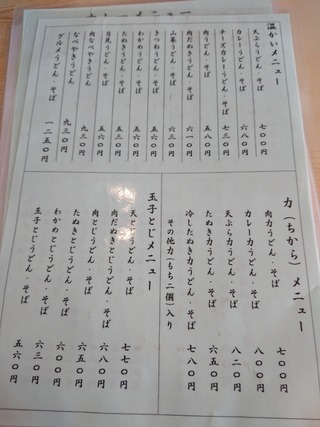 温かいメニュー
天ぷらうどん・そば 七〇〇円
カレーうどん・そば 六八〇円
チーズカレーうどん・そば 七三〇円
肉うどん・そば 五八〇円
肉だぬきうどん・そば 六一〇円
山菜うどん・そば 六三〇円
きつねうどん・そば 五六〇円
わかめうどん・そば 五六〇円
たぬきうどん・そば 五三〇円
月見うどん・そば 五六〇円
肉なべやきうどん 九三〇円
なべやきうどん 九三〇円
グルメうどん・そば 一二五〇円
力(ちから)メニュー
肉力うどん・そば 七〇〇円
カレー力うどん・そば 八〇〇円
天ぷら力うどん・そば 八二〇円
たぬき力うどん・そば 六五〇円
冷したぬき力うどん・そば 七八〇円
その他力(もち二個)入り
玉子とじメニュー
天とじうどん・そば 七七〇円
肉だぬきとじうどん・そば 六八〇円
肉とじうどん・そば 六五〇円
たぬきとじうどん・そば 六〇〇円
わかめとじうどん・そば 六三〇円
玉子とじうどん・そば 五六〇円